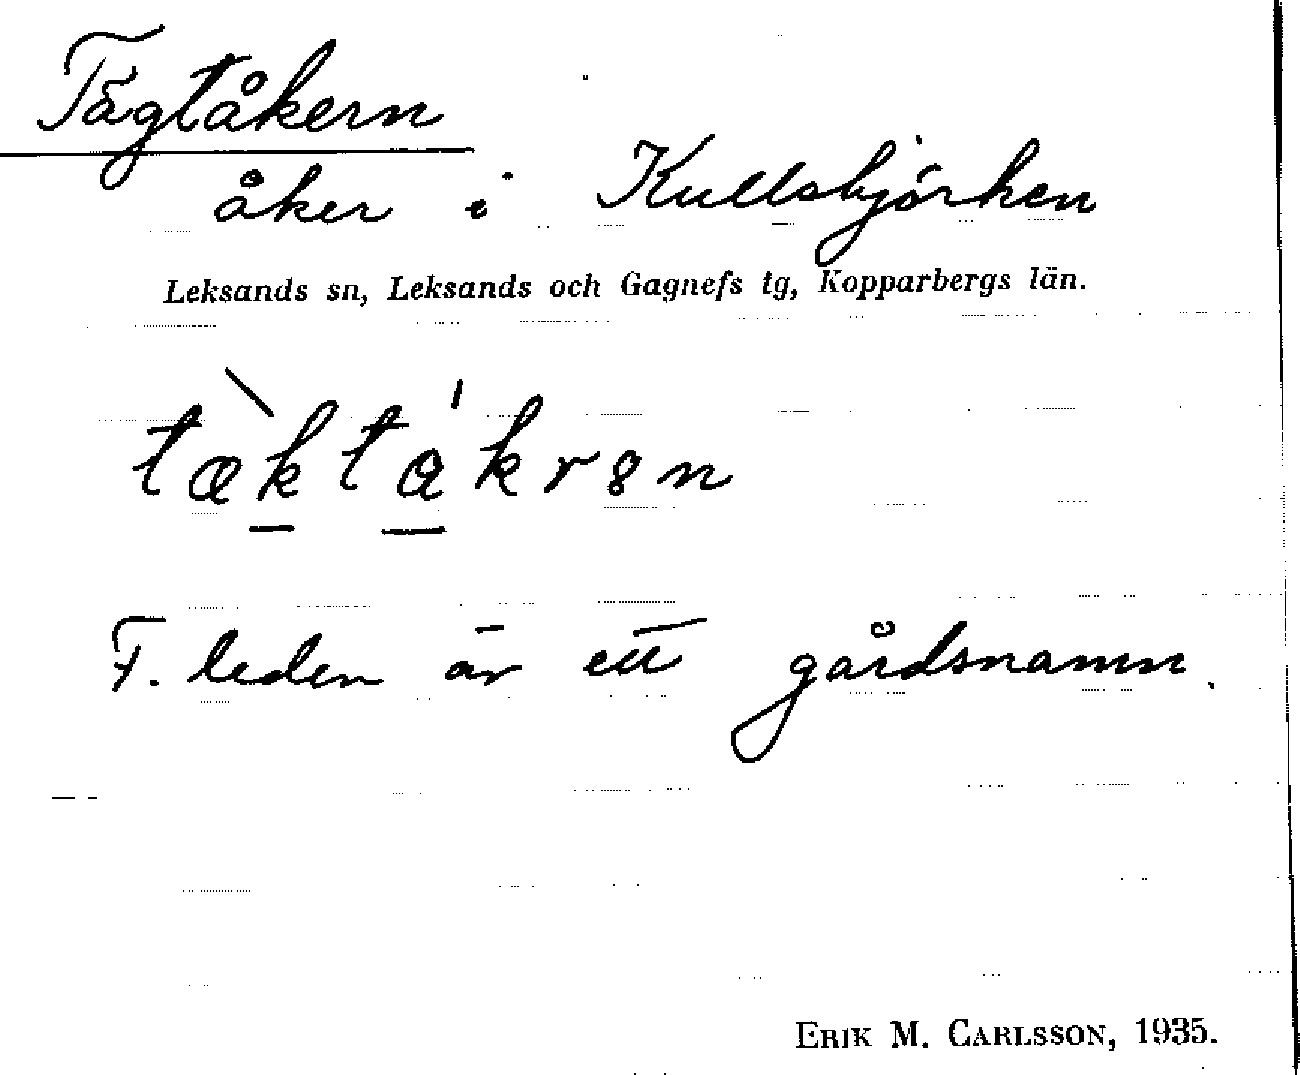 Tägtåkern
åker i Kullsbjörken
Leksands sn, Leksands och Gagnefs tg, Kopparbergs län.
tæ̀ktákrən
F. leden är ett gårdsnamn.
ERIK M. CARLSSON, 1935.